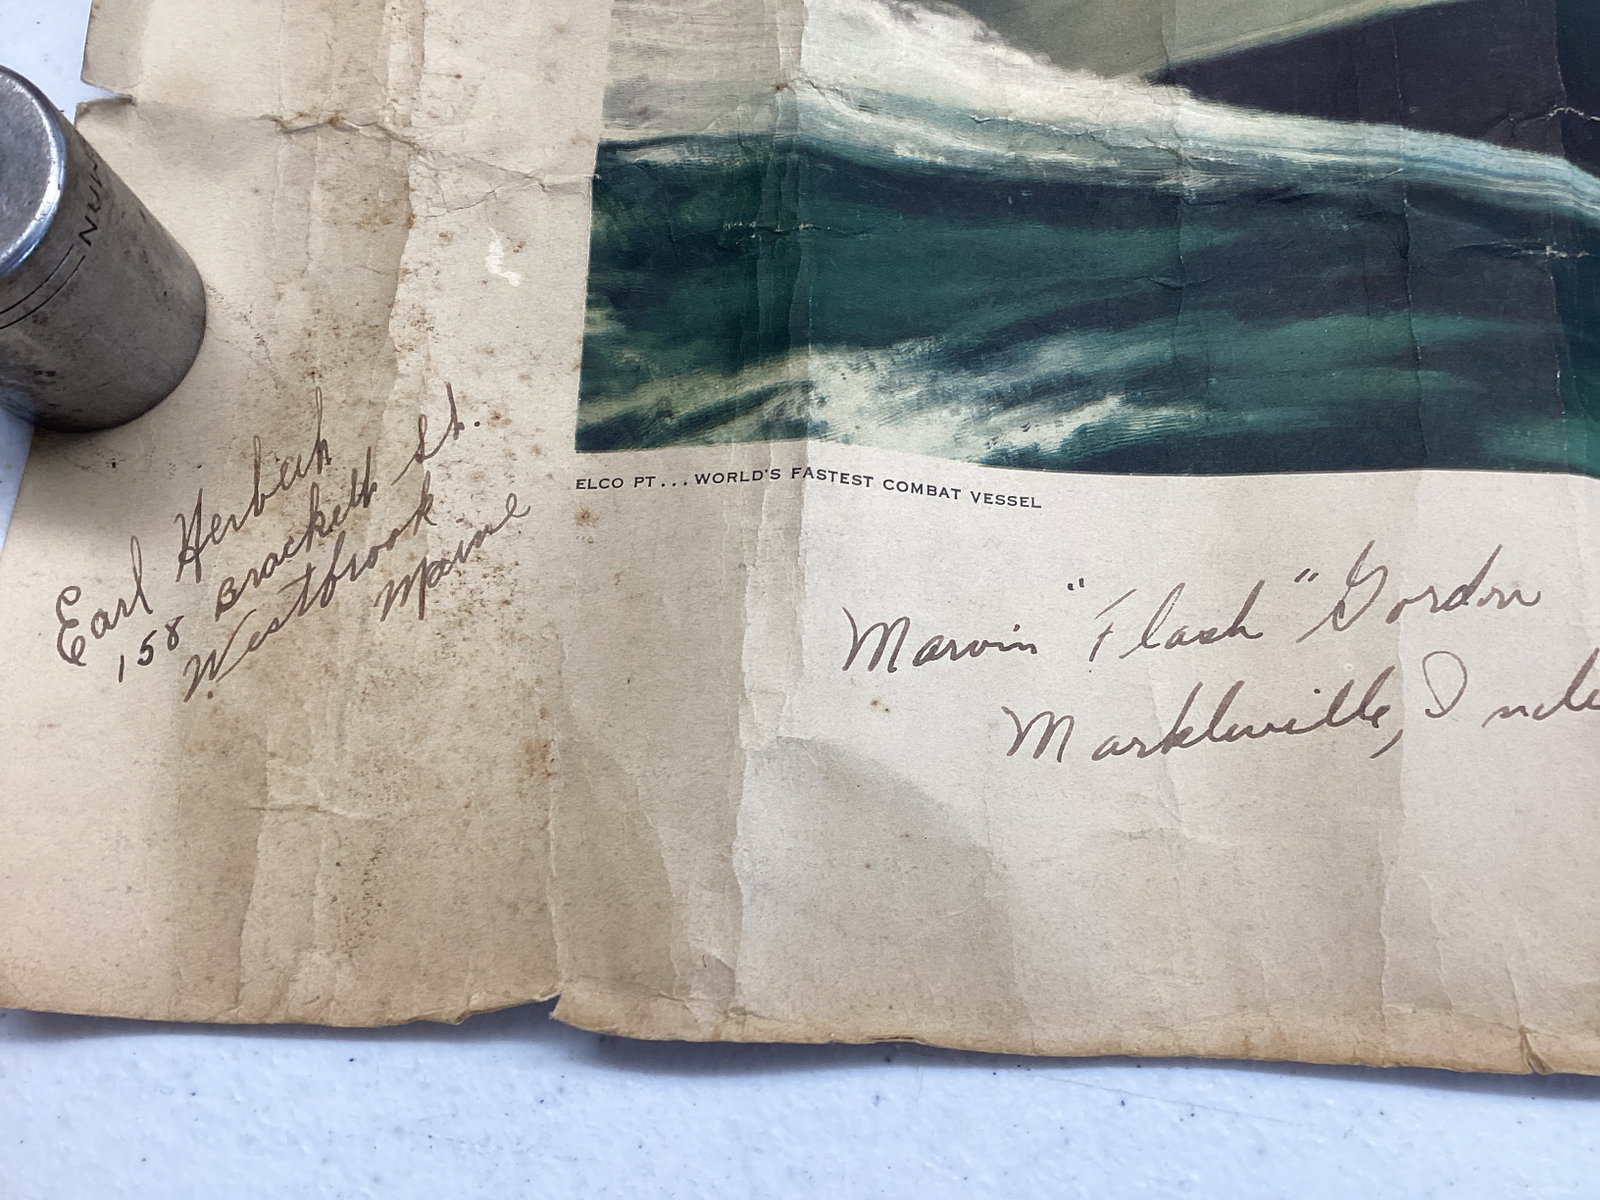 NUN
ELCO PT... WORLD'S FASTEST COMBAT VESSEL
Earl
158 Brackett St.
Westbrook
Maine
Marvin "Flash" Gordon
Markleville, Indi